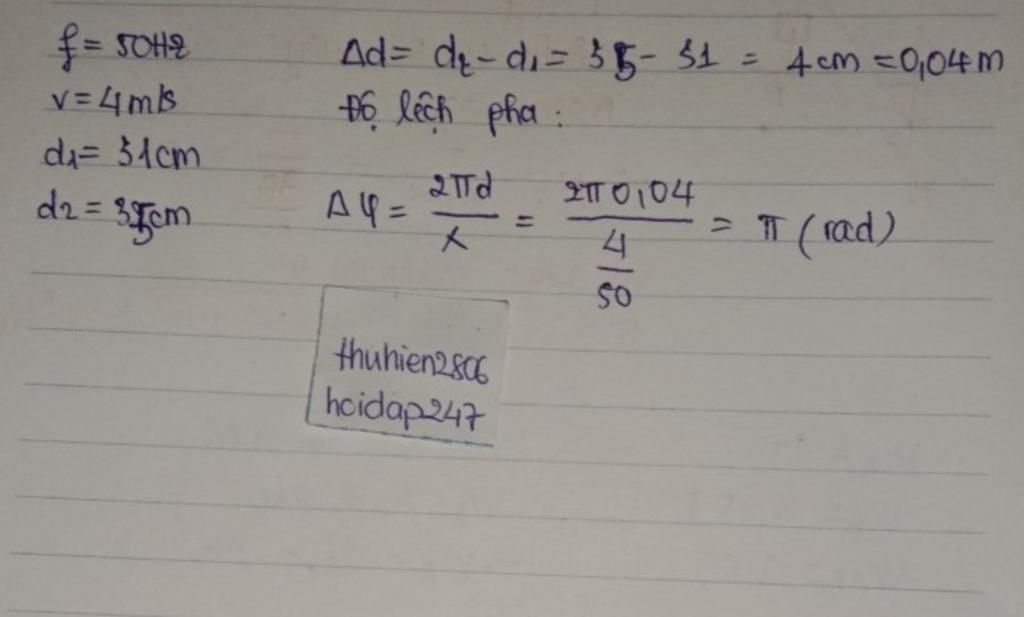 f = 50Hz
v = 4m/s
d1 = 31cm
d2 = 35cm
Δd = d2 - d1 = 35 - 31 = 4cm = 0,04m
Độ lệch pha :
Δφ = 2πd / λ = 2π0,04 / (4/50) = π (rad)
thuhien2806
hoidap247